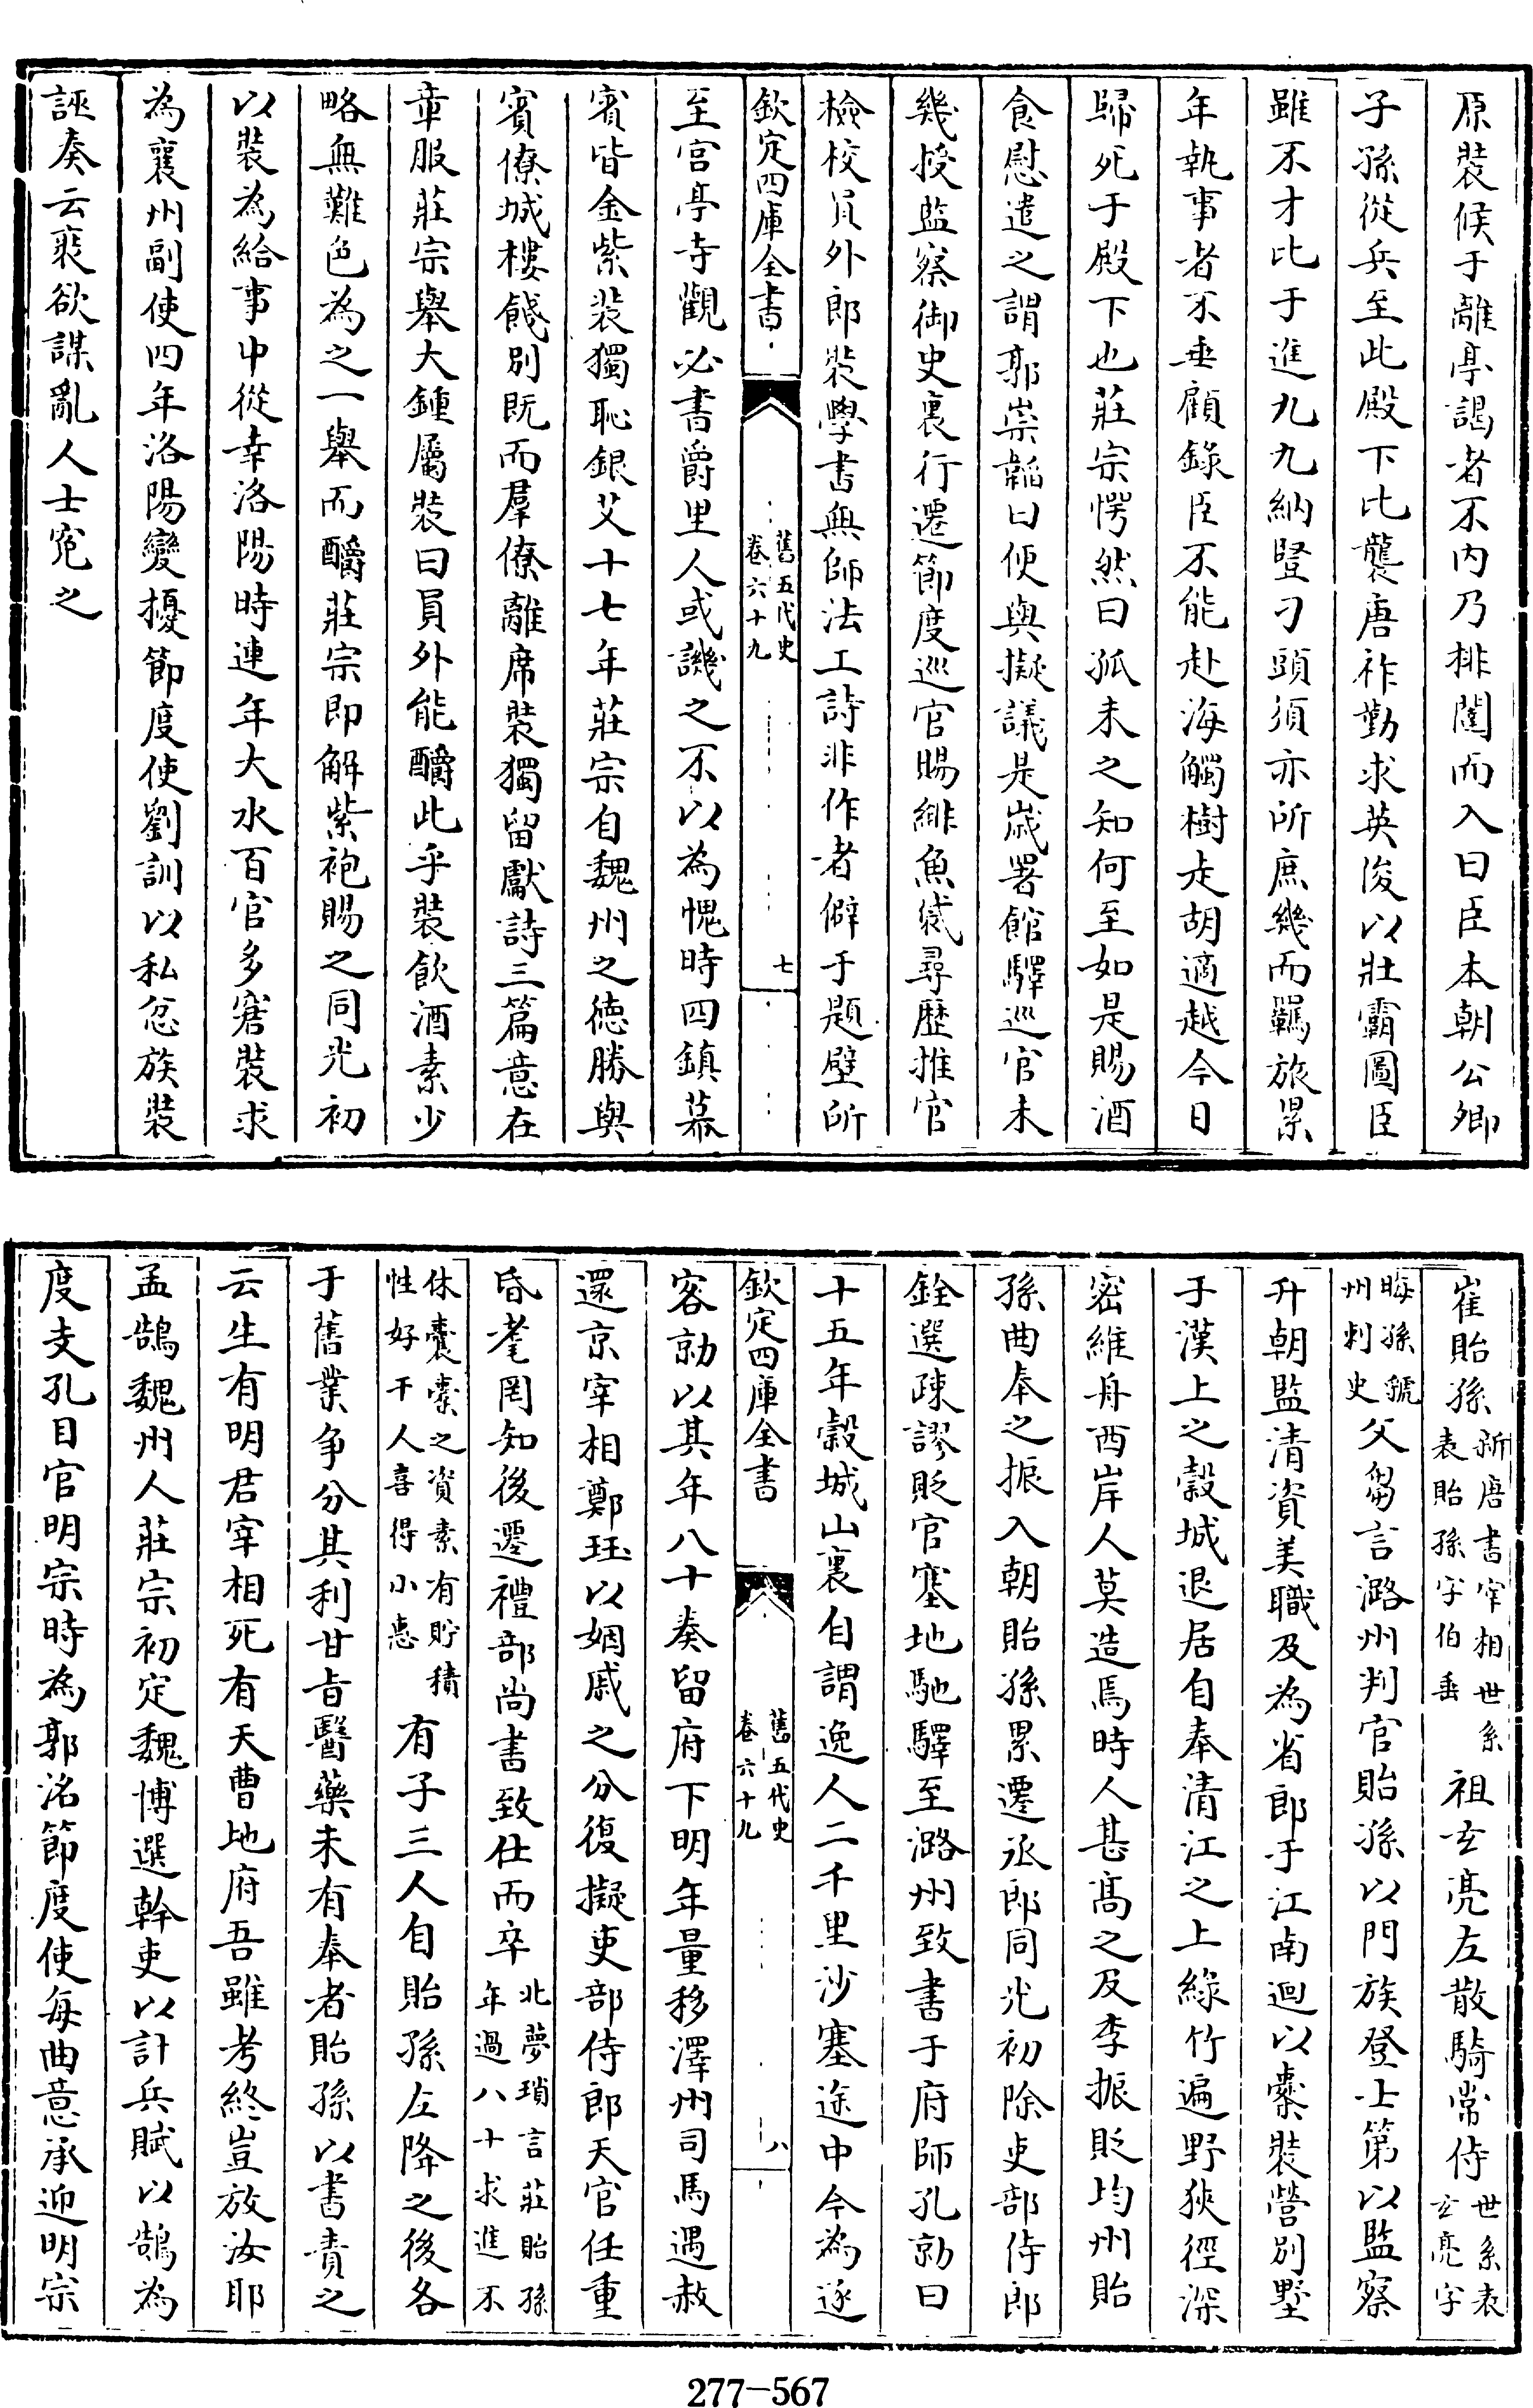 原裝候于離亭謁者不內乃排闥而入曰臣本朝公卿
子孫從兵至此殿下比襲唐祚勤求英俊以壯霸圖臣
雖不才比于進九九納豎刁頭須亦所庶幾而羈旅累
年執事者不垂顧錄臣不能赴海觸樹走胡適越今日
歸死于殿下也莊宗愕然曰孤未之知何至如是賜酒
食慰遣之謂郭崇韜曰便與擬議是歲署館驛巡官未
幾授監察御史裏行遷節度巡官賜緋魚袋尋歷推官
檢校員外郎裝學書無師法工詩非作者僻于題壁所
欽定四庫全書
舊五代史
卷六十九
七
至宫亭寺觀必書爵里人或譏之不以為愧時四鎮幕
賓皆金紫裝獨恥銀艾十七年莊宗自魏州之德勝與
賓僚城樓餞別既而羣僚離席裝獨留獻詩三篇意在
章服莊宗舉大鍾屬裝曰員外能釂此乎裝飲酒素少
略無難色為之一舉而釂莊宗即解紫袍賜之同光初
以裝為給事中從幸洛陽時連年大水百官多窘裝求
為襄州副使四年洛陽變擾節度使劉訓以私忿族裝
誣奏云裝欲謀亂人士寃之
崔貽孫
新唐書宰相世系
表貽孫字伯垂
祖玄亮左散騎常侍
世系表
玄亮字
晦孫虢
州刺史
父芻言潞州判官貽孫以門族登上第以監察
升朝監清資美職及為省郎于江南迴以橐裝營別墅
于漢上之穀城退居自奉清江之上綠竹遍野狹徑深
密維舟西岸人莫造焉時人甚高之及李振貶均州貽
孫曲奉之振入朝貽孫累遷丞郎同光初除吏部侍郎
銓選疎謬貶官塞地馳驛至潞州致書于府師孔勍曰
十五年穀城山裏自謂逸人二千里沙塞途中今為逐
欽定四庫全書
舊五代史
卷六十九
八
客勍以其年八十奏留府下明年量移澤州司馬遇赦
還京宰相鄭珏以姻戚之分復擬吏部侍郎天官任重
昏耄罔知後遷禮部尚書致仕而卒
北夢瑣言莊貽孫
年過八十求進不
休囊橐之資素有貯積
性好干人喜得小惠
有子三人自貽孫左降之後各
于舊業争分其利甘旨醫藥未有奉者貽孫以書責之
云生有明君宰相死有天曹地府吾雖考終豈放汝耶
孟鵠魏州人莊宗初定魏博選幹吏以計兵賦以鵠為
度支孔目官明宗時為郭洺節度使每曲意承迎明宗
277-567